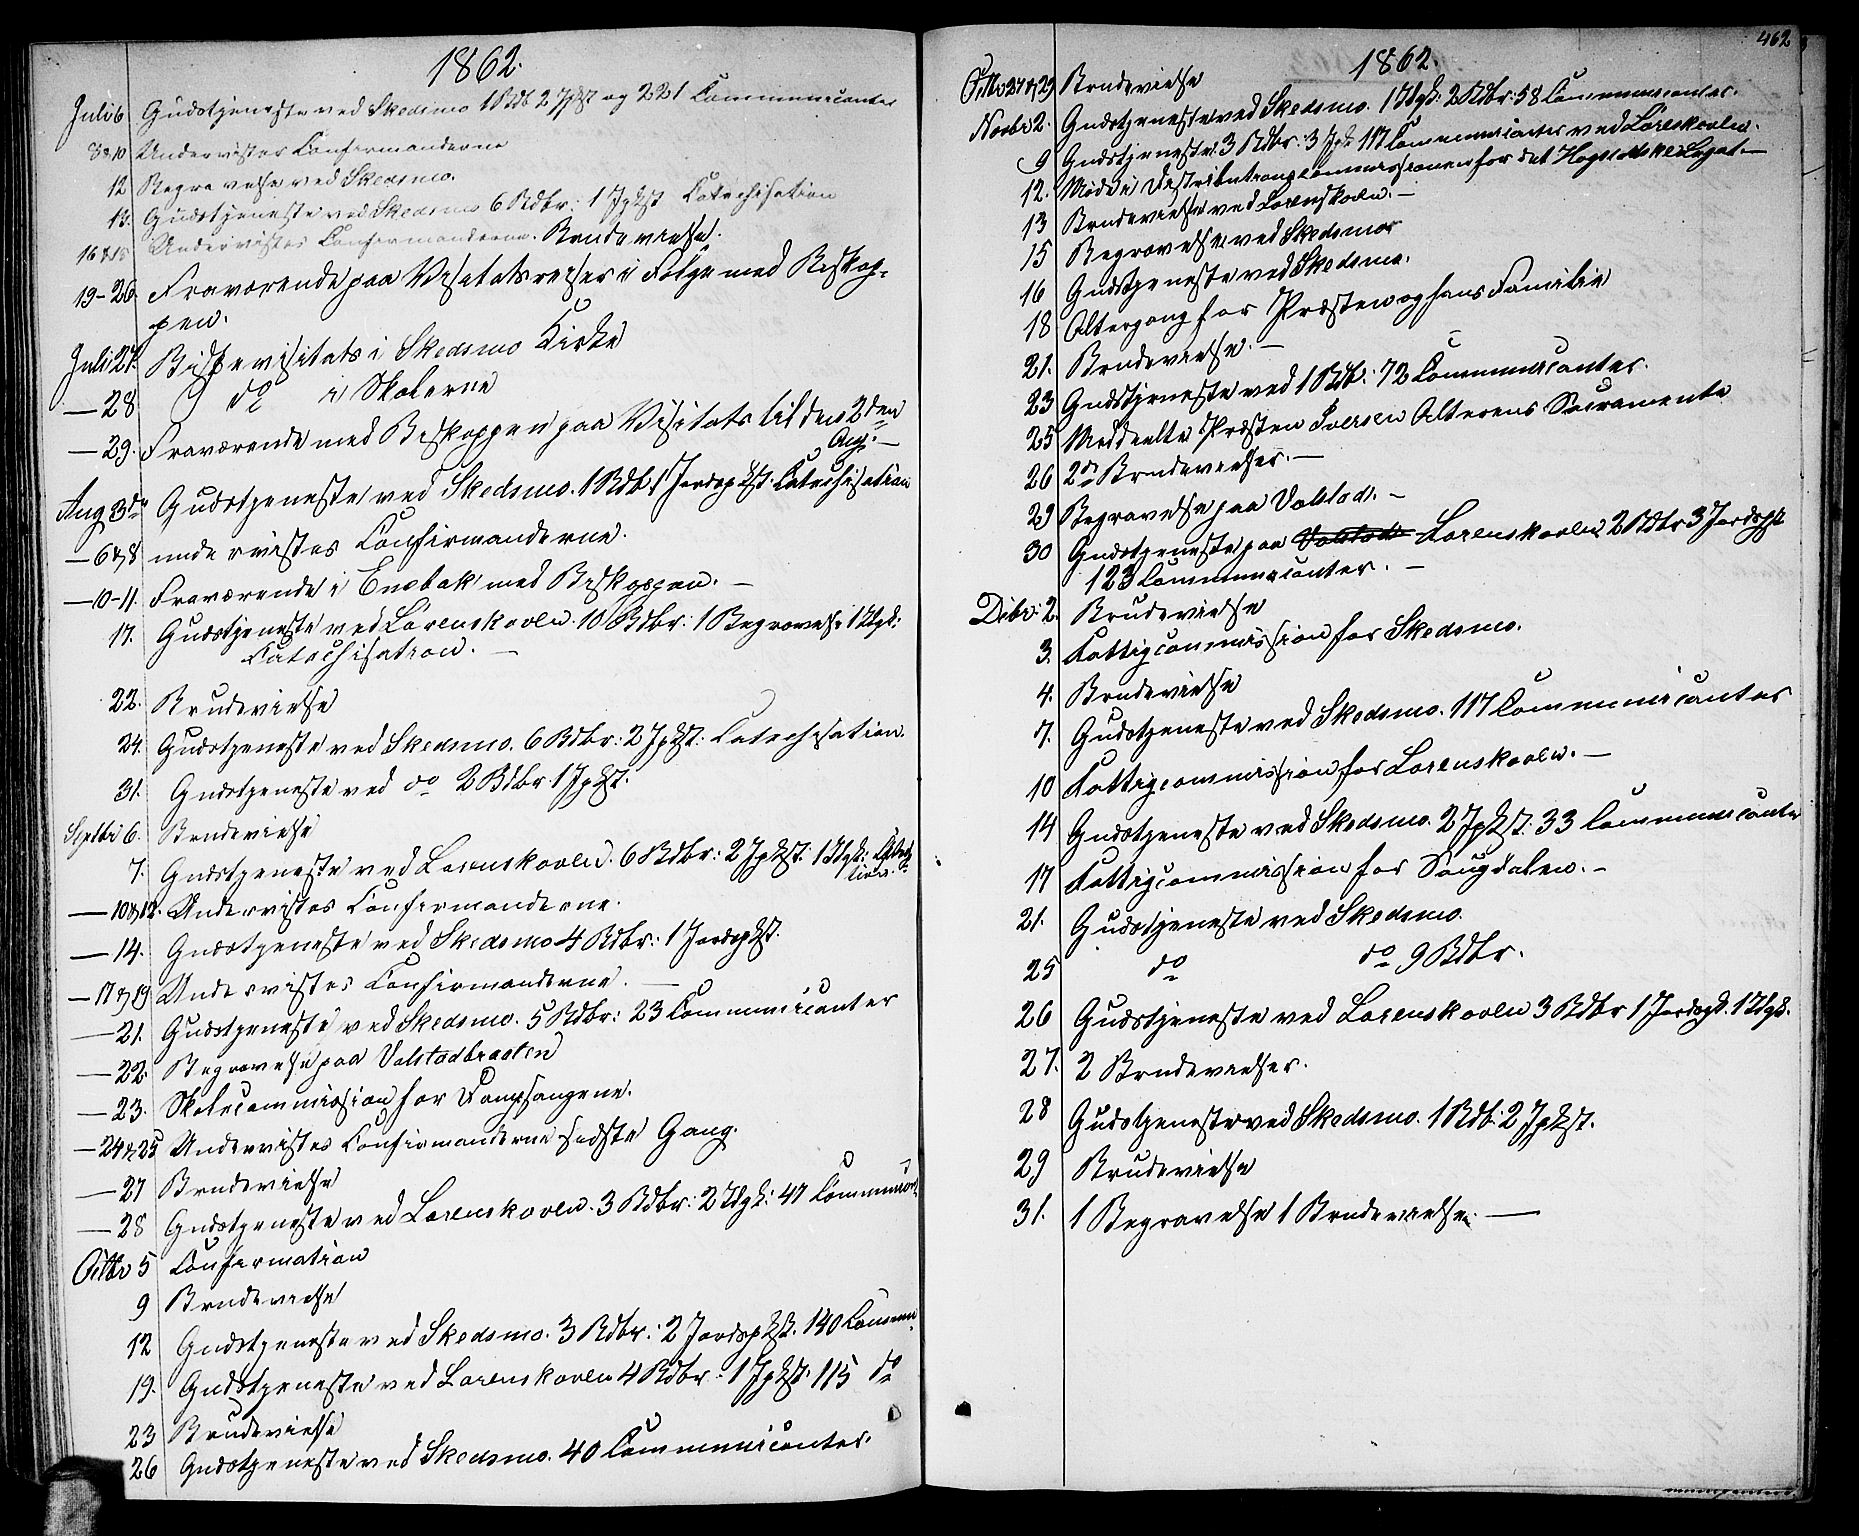 1862.
Juli 6 Gudstjeneste ved Skedsmo 1 Rdb 2 JpKst og 221 Communicanter
8 & 10 Undervistes Confirmanderne
12 Begravelse ved Skedsmo.
13. Gudstjeneste ved Skedsmo 6 Bdbr: 1 JpKst Catechisation
16 & 18 Undervistes Confirmanderne. Brudevielse.
19-26 Fraværende paa Visitatsreiser i Følge med Biskop-
pen.
Juli 27. Bispevisitats i Skedsmo Kirke
— 28 do i Skolerne
— 29. Fraværende med Biskoppen paa Visitats til den 2den
Aug. —
Aug 3de Gudstjeneste ved Skedsmo. 1 Bdb. 1 JordspKst. Catechisation
— 6 & 8 undervistes Confirmanderne.
— 10-11. Fraværende i Enebak med Biskoppen. —
17. Gudstjeneste ved Lørenskoven. 10 Bdbr: 1 Begravelse 1 Idgk:
Catechisation. —
22. Brudevielse
24. Gudstjeneste ved Skedsmo. 6 Bdbr: 2 JpKst: Catechisation.
31. Gudstjeneste ved do 2 Bdbr. 1 JpKst.
Septbr 6. Brudevielse
7. Gudstjeneste ved Lørenskoven. 6 Bdbr: 2 JpKst: 1 Idgk:
— 10 & 12. Undervistes Confirmanderne.
— 14. Gudstjeneste ved Skedsmo 4 Bdbr: 1 JordspKst.
— 17 & 19 Undervistes Confirmanderne. —
— 21. Gudstjeneste ved Skedsmo. 5 Bdbr: 23 Communicanter
— 22. Begravelse paa Valstadbraaten
— 23. Skolecommission for
— 24 & 25 Undervistes Confirmanderne sidste Gang.
— 27 Brudevielse
— 28 Gudstjeneste ved Lørenskoven. 3 Bdbr: 2 Idgk: 47 Communic.
Octbr 5 Confirmation
9 Brudevielse
12 Gudstjeneste ved Skedsmo. 3 Bdbr: 2 JordspKst. 140 Commu.
19. Gudstjeneste ved Lørenskoven 4 Bdbr: 1 JpKst. 115 do
23 Brudevielse
26 Gudstjeneste ved Skedsmo. 40 Communicanter.
462
1862.
Octbr 27 & 29 Brudevielse
Novbr 2. Gudstjeneste ved Skedsmo. 1 Idgk: 2 Bdbr: 58 Communicanter.
9 Gudstjeneste: 3 Bdbr: 3 Jpk 117 Communicanter ved Lørenskoven.
12. Møde i Distributionscommissionen for det Legat. —
13 Brudevielse ved Lørenskoven. —
15 Begravelse ved Skedsmo
16 Gudstjeneste ved Skedsmo.
18 Altergang for Præsten og hans Familie
21. Brudevielse. —
23 Gudstjeneste ved 1 Bdb: 72 Communicanter.
25 Meddeelte Præsten Iversen Alterens Sacramente
26 2de Brudevielser. —
29 Begravelse paa Valstad. —
30 Gudstjeneste paa Valstad Lørenskoven 2 Bdbr 3 Jordspst
123 Communicanter. —
Debr: 2. Brudevielse
3. Fattigcommission for Skedsmo.
4. Brudevielse
7. Gudstjeneste ved Skedsmo. 117 Communicanter
10 Fattigcommission for Lørenskoven. —
14 Gudstjeneste ved Skedsmo. 2 JpKst: 33 Communicanter
17 Fattigcommission for Sougdalen. —
21. Gudstjeneste ved Skedsmo.
25 do do 9 Bdbr.
26 Gudstjeneste ved Lørenskoven 3 Bdbr 1 Jordspk. 1 Idgk.
27. 2 Brudevielser.
28 Gudstjeneste ved Skedsmo. 1 Bdb. 2 JpKst.
29 Brudevielse
31. 1 Begravelse 1 Brudevielse. —